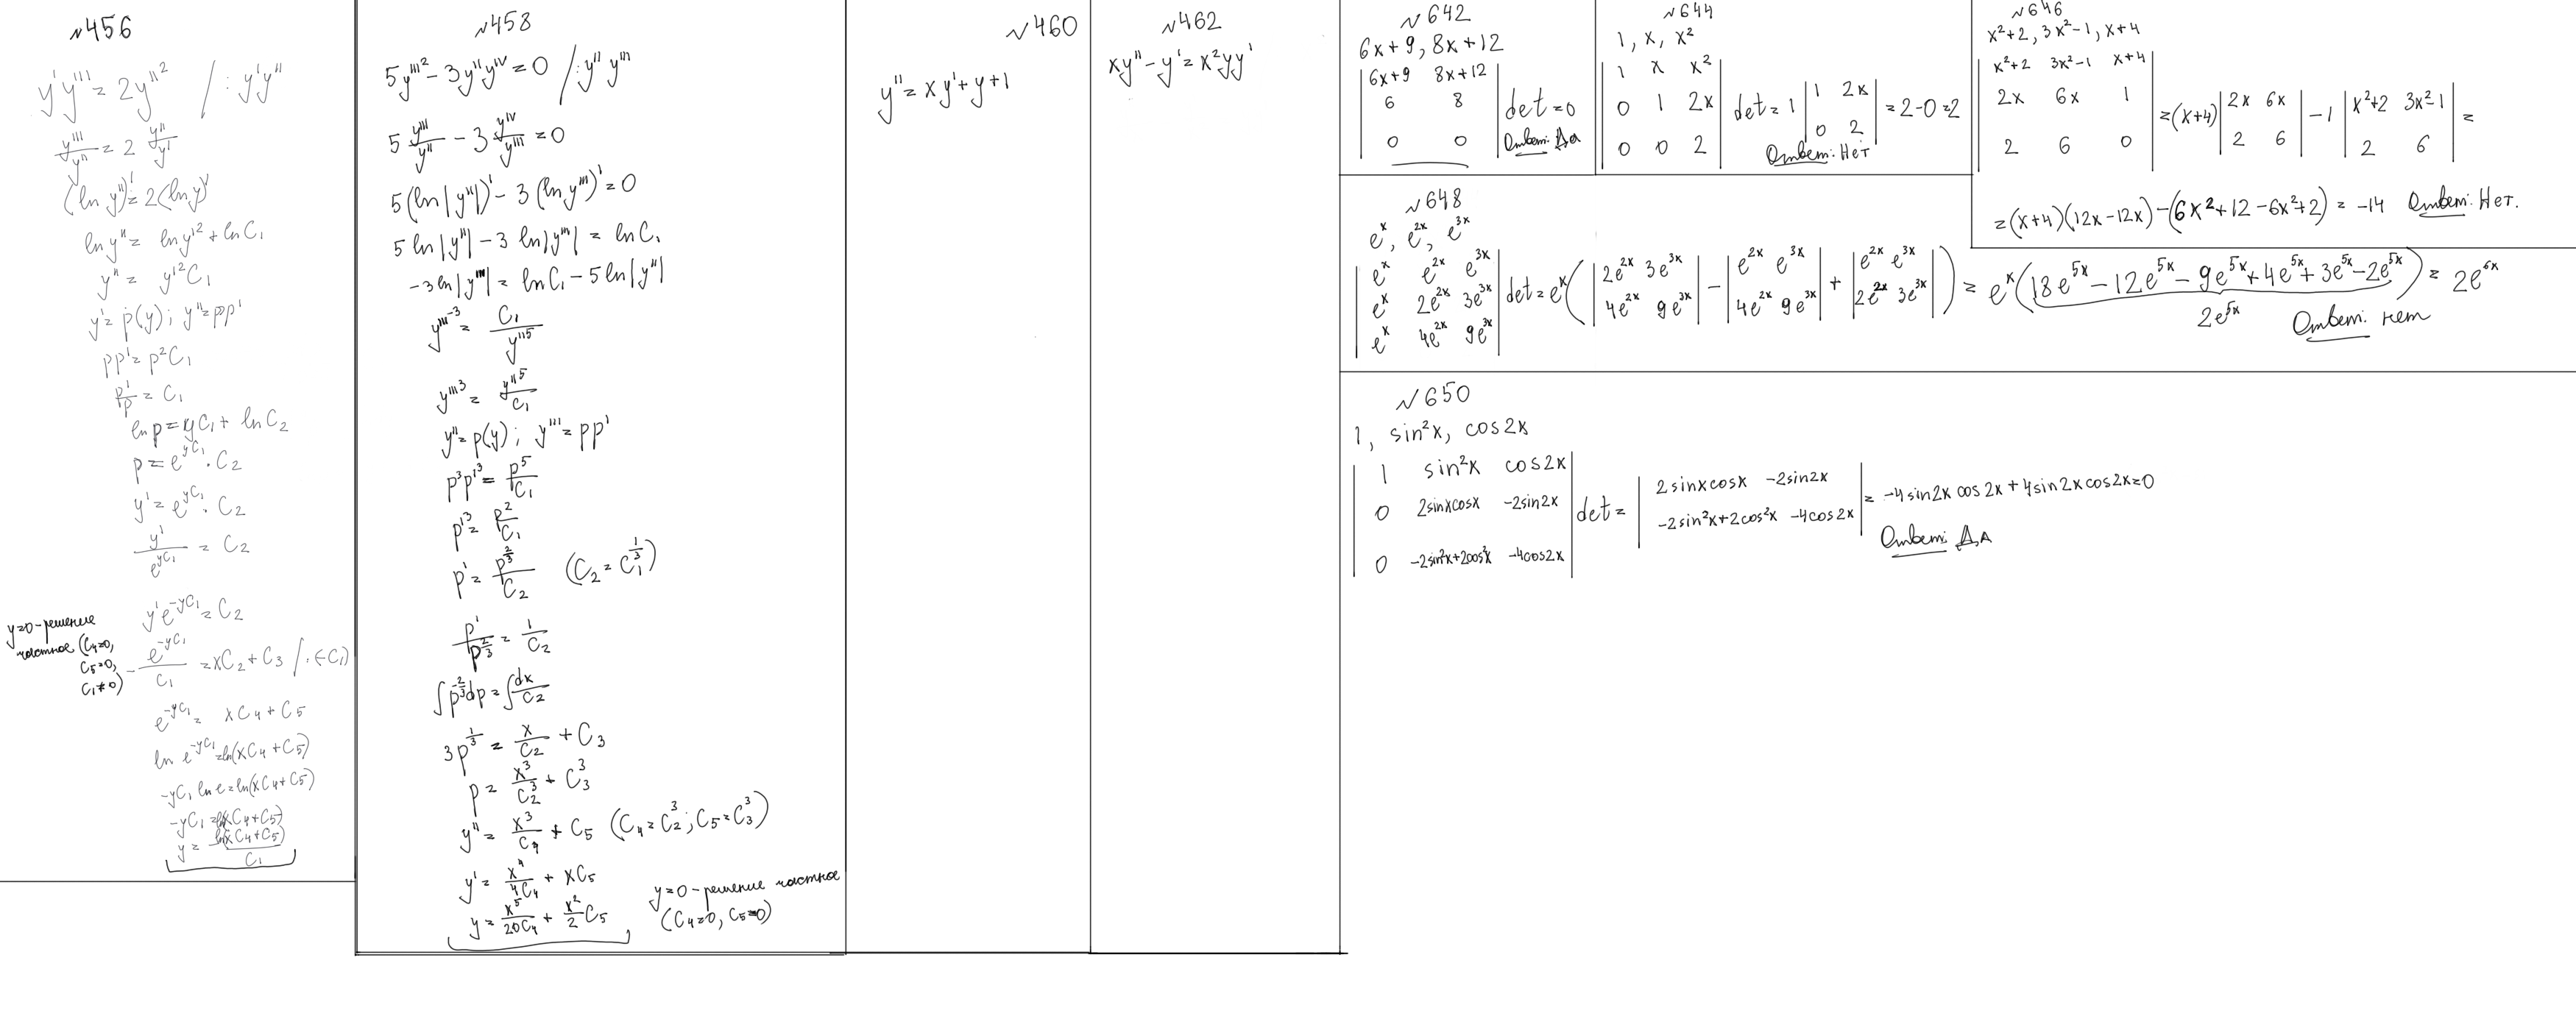 №456
y'y''' = 2y''² / : y'y''
y'''/y'' = 2 y''/y'
(ln y'')' = 2(ln y)'
ln y'' = ln y'² + ln C₁
y'' = y'²C₁
y' = p(y); y'' = pp'
pp' = p²C₁
p'/p = C₁
ln p = yC₁ + ln C₂
p = e^(yC₁) · C₂
y' = e^(yC₁) · C₂
y'/e^(yC₁) = C₂
y'e^(-yC₁) = C₂
y=0 - решение
частное (C₄=0,
C₅=0,
C₁≠0)
- e^(-yC₁)/C₁ = xC₂ + C₃ / · (-C₁)
e^(-yC₁) = xC₄ + C₅
ln e^(-yC₁) = ln(xC₄ + C₅)
-yC₁ ln e = ln(xC₄ + C₅)
-yC₁ = ln(xC₄ + C₅)
y = - ln(xC₄ + C₅)/C₁
№458
5y'''² - 3y''yᴵⱽ = 0 / : y'' y'''
5 y'''/y'' - 3 yᴵⱽ/y''' = 0
5(ln|y''|)' - 3(ln y''')' = 0
5 ln|y''| - 3 ln|y'''| = ln C₁
-3 ln|y'''| = ln C₁ - 5 ln|y''|
y'''⁻³ = C₁/y''⁵
y'''³ = y''⁵/C₁
y'' = p(y); y''' = pp'
p³p'³ = p⁵/C₁
p'³ = p²/C₁
p' = p^(2/3)/C₂ (C₂ = C₁^(1/3))
p'/p^(2/3) = 1/C₂
∫p^(-2/3)dp = ∫dx/C₂
3p^(1/3) = x/C₂ + C₃
p = x³/C₂³ + C₃³
y'' = x³/C₄ + C₅ (C₄ = C₂³; C₅ = C₃³)
y' = x⁴/4C₄ + xC₅
y = x⁵/20C₄ + x²/2 C₅
y=0 - решение частное
(C₄=0, C₅=0)
№460
y'' = xy' + y + 1
№462
xy'' - y' = x²yy'
№642
6x+9, 8x+12
|6x+9 8x+12|
|6 8| det = 0
|0 0| Ответ: Да
№644
1, x, x²
|1 x x²|
|0 1 2x| det = 1 |1 2x; 0 2| = 2-0=2
|0 0 2| Ответ: Нет
№646
x²+2, 3x²-1, x+4
|x²+2 3x²-1 x+4|
|2x 6x 1| = (x+4) |2x 6x; 2 6| - 1 |x²+2 3x²-1; 2 6| =
|2 6 0|
= (x+4)(12x-12x) - (6x²+12-6x²+2) = -14 Ответ: Нет.
№648
eˣ, e²ˣ, e³ˣ
|eˣ e²ˣ e³ˣ|
|eˣ 2e²ˣ 3e³ˣ| det = eˣ( |2e²ˣ 3e³ˣ; 4e²ˣ 9e³ˣ| - |e²ˣ e³ˣ; 4e²ˣ 9e³ˣ| + |e²ˣ e³ˣ; 2e²ˣ 3e³ˣ| ) = eˣ(18e⁵ˣ - 12e⁵ˣ - 9e⁵ˣ + 4e⁵ˣ + 3e⁵ˣ - 2e⁵ˣ) = 2e⁶ˣ
|eˣ 4e²ˣ 9e³ˣ|
2e⁵ˣ
Ответ: нет
№650
1, sin²x, cos2x
|1 sin²x cos2x|
|0 2sinxcosx -2sin2x| det = |2sinxcosx -2sin2x; -2sin²x+2cos²x -4cos2x| = -4sin2x cos2x + 4sin2x cos2x = 0
|0 -2sin²x+2cos²x -4cos2x|
Ответ: Да